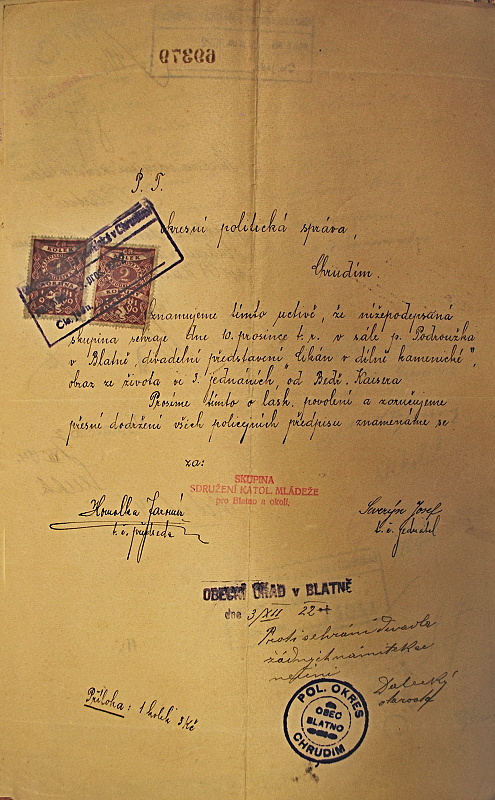 P. T.
okresní politická správa,
Chrudim.
Oznamujeme tímto uctivě, že nížepodepsaná
skupina sehraje dne 10. prosince t. r. v sále p. Podroužka
v Blatně, divadelní představení „Čekán v dílně kamenické",
obraz ze života ve 3. jednáních, od Bedř. Kaisera
Prosíme tímto o lask. povolení a zaručujeme
přesné dodržení všech policejních předpisů znamenáme se
za:
SKUPINA
SDRUŽENÍ KATOL. MLÁDEŽE
pro Blatno a okolí.
Homolka Jaromír
t. č. předseda
Severýn Josef
t. č. jednatel
OBECNÍ ÚŘAD v BLATNĚ
dne 3/XII 22
Proti sehrání divadla
žádných námitek se
nečiní
Dalecký
starosta
POL. OKRES
OBEC
BLATNO
CHRUDIM
Příloha: 1 kolek 3 Kč